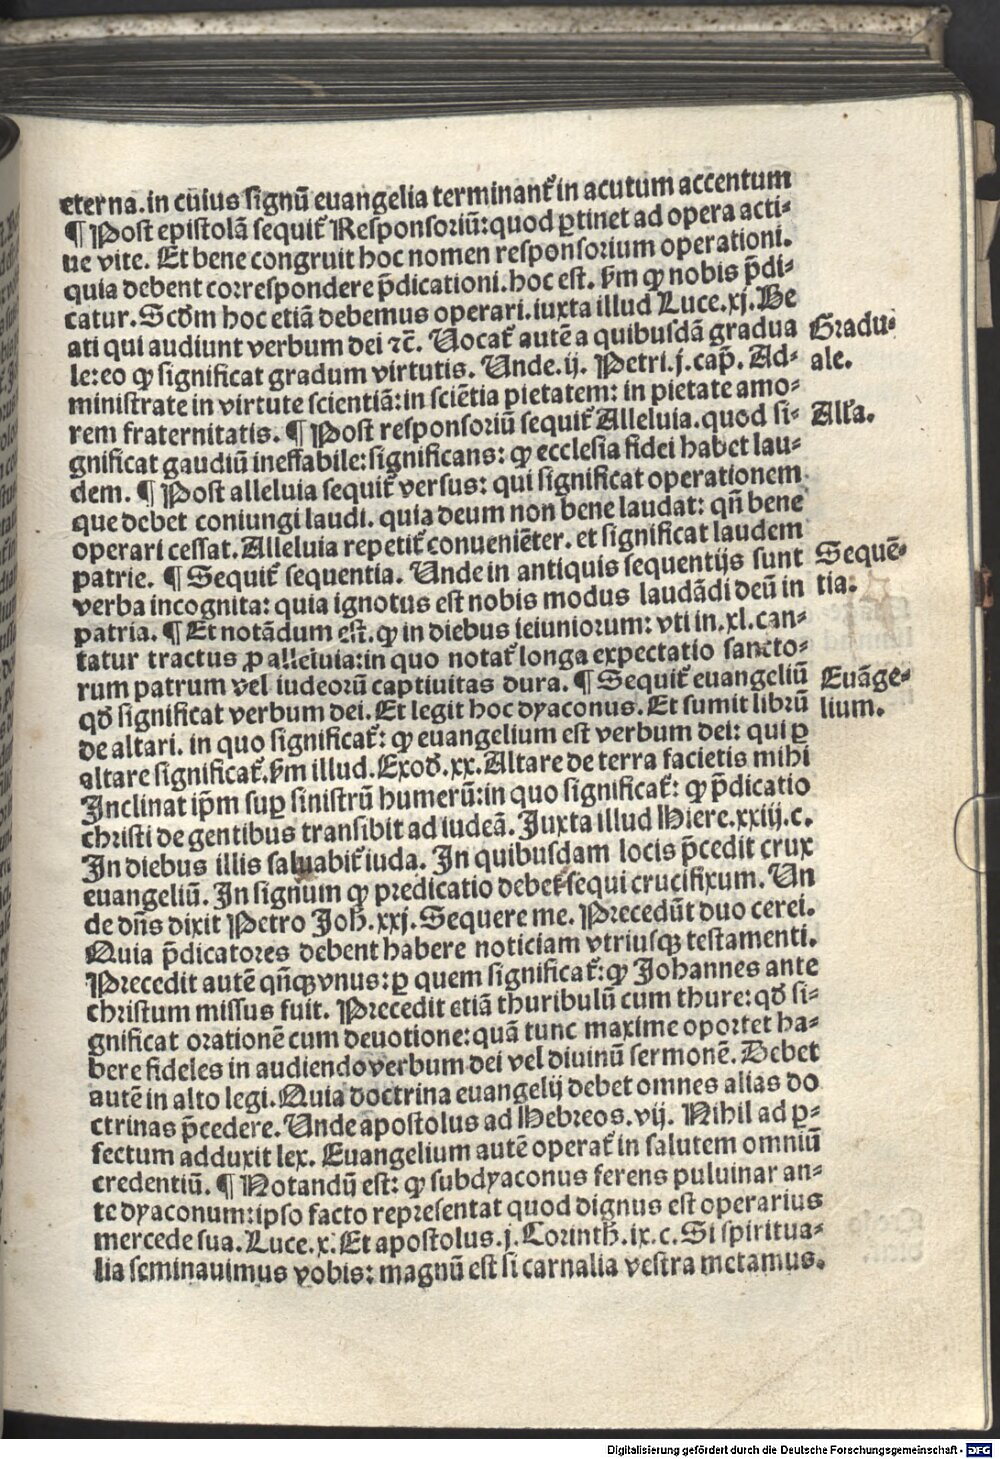 eterna.in cuius signū euangelia terminant᷑ in acutum accentum
¶ Post epistolā sequit᷑ Responsoriū:quod ꝑtinet ad opera acti⸗
ue vite. Et bene congruit hoc nomen responsorium operationi.
quia debent correspondere p̄dicationi.hoc est. ẜm ꝙ nobis p̄di⸗
catur.Scd̄m hoc etiā debemus operari.iuxta illud Luce.xj.Be
ati qui audiunt verbum dei ⁊c̄. Uocat᷑ autē a quibusdā gradua
le:eo ꝙ significat gradum virtutis. Unde.ij. Petri.j.cap̄. Ad⸗
ministrate in virtute scientiā:in sciētia pietatem: in pietate amo⸗
rem fraternitatis. ¶ Post responsoriū sequit᷑ Alleluia.quod si⸗
gnificat gaudiū ineffabile:significans: ꝙ ecclesia fidei habet lau⸗
dem. ¶ Post alleluia sequit᷑ versus: qui significat operationem
que debet coniungi laudi. quia deum non bene laudat: qn̄ bene
operari cessat.Alleluia repetit᷑ conueniēter. et significat laudem
patrie. ¶ Sequit᷑ sequentia. Unde in antiquis sequentijs sunt
verba incognita: quia ignotus est nobis modus laudādi deū in
patria. ¶ Et notādum est.ꝙ in diebus ieiuniorum: vti in.xl.can⸗
tatur tractus ꝓ alleluia:in quo notat᷑ longa expectatio sancto⸗
rum patrum vel iudeorū captiuitas dura. ¶ Sequit᷑ euangeliū
qd̄ significat verbum dei. Et legit hoc dyaconus. Et sumit librū
de altari. in quo significat᷑: ꝙ euangelium est verbum dei: qui ꝑ
altare significat᷑.ẜm illud.Exod̄.xx.Altare de terra facietis mihi
Inclinat ip̄m suꝑ sinistrū humerū:in quo significat᷑: ꝙ p̄dicatio
christi de gentibus transibit ad iudeā. Juxta illud Hiere.xxiij.c.
In diebus illis saluabit᷑ iuda. In quibusdam locis p̄cedit crux
euangeliū. In signum ꝙ predicatio debet sequi crucifixum. Un
de dn̄s dixit Petro Joh̄.xxj.Sequere me. Precedūt duo cerei.
Quia p̄dicatores debent habere noticiam vtriusqꝫ testamenti.
Precedit autē qn̄qꝫ vnus:ꝑ quem significat᷑:ꝙ Johannes ante
christum missus fuit. Precedit etiā thuribulū cum thure:qd̄ si⸗
gnificat orationē cum deuotione:quā tunc maxime oportet ha⸗
bere fideles in audiendo verbum dei vel diuinū sermonē. Debet
autē in alto legi.Quia doctrina euangelij debet omnes alias do
ctrinas p̄cedere. Unde apostolus ad Hebreos.vij. Nihil ad ꝑ⸗
fectum adduxit lex. Euangelium autē operat᷑ in salutem omniū
credentiū. ¶ Notandū est: ꝙ subdyaconus ferens puluinar an⸗
te dyaconum:ipso facto representat quod dignus est operarius
mercede sua.Luce.x.Et apostolus.j.Corinth̄.ix.c.Si spiritua⸗
lia seminauimus vobis: magnū est si carnalia vestra metamus.
Gradu⸗
ale.
All'a.
Sequē⸗
tia.
Euāge⸗
lium.
Digitalisierung gefördert durch die Deutsche Forschungsgemeinschaft - DFG